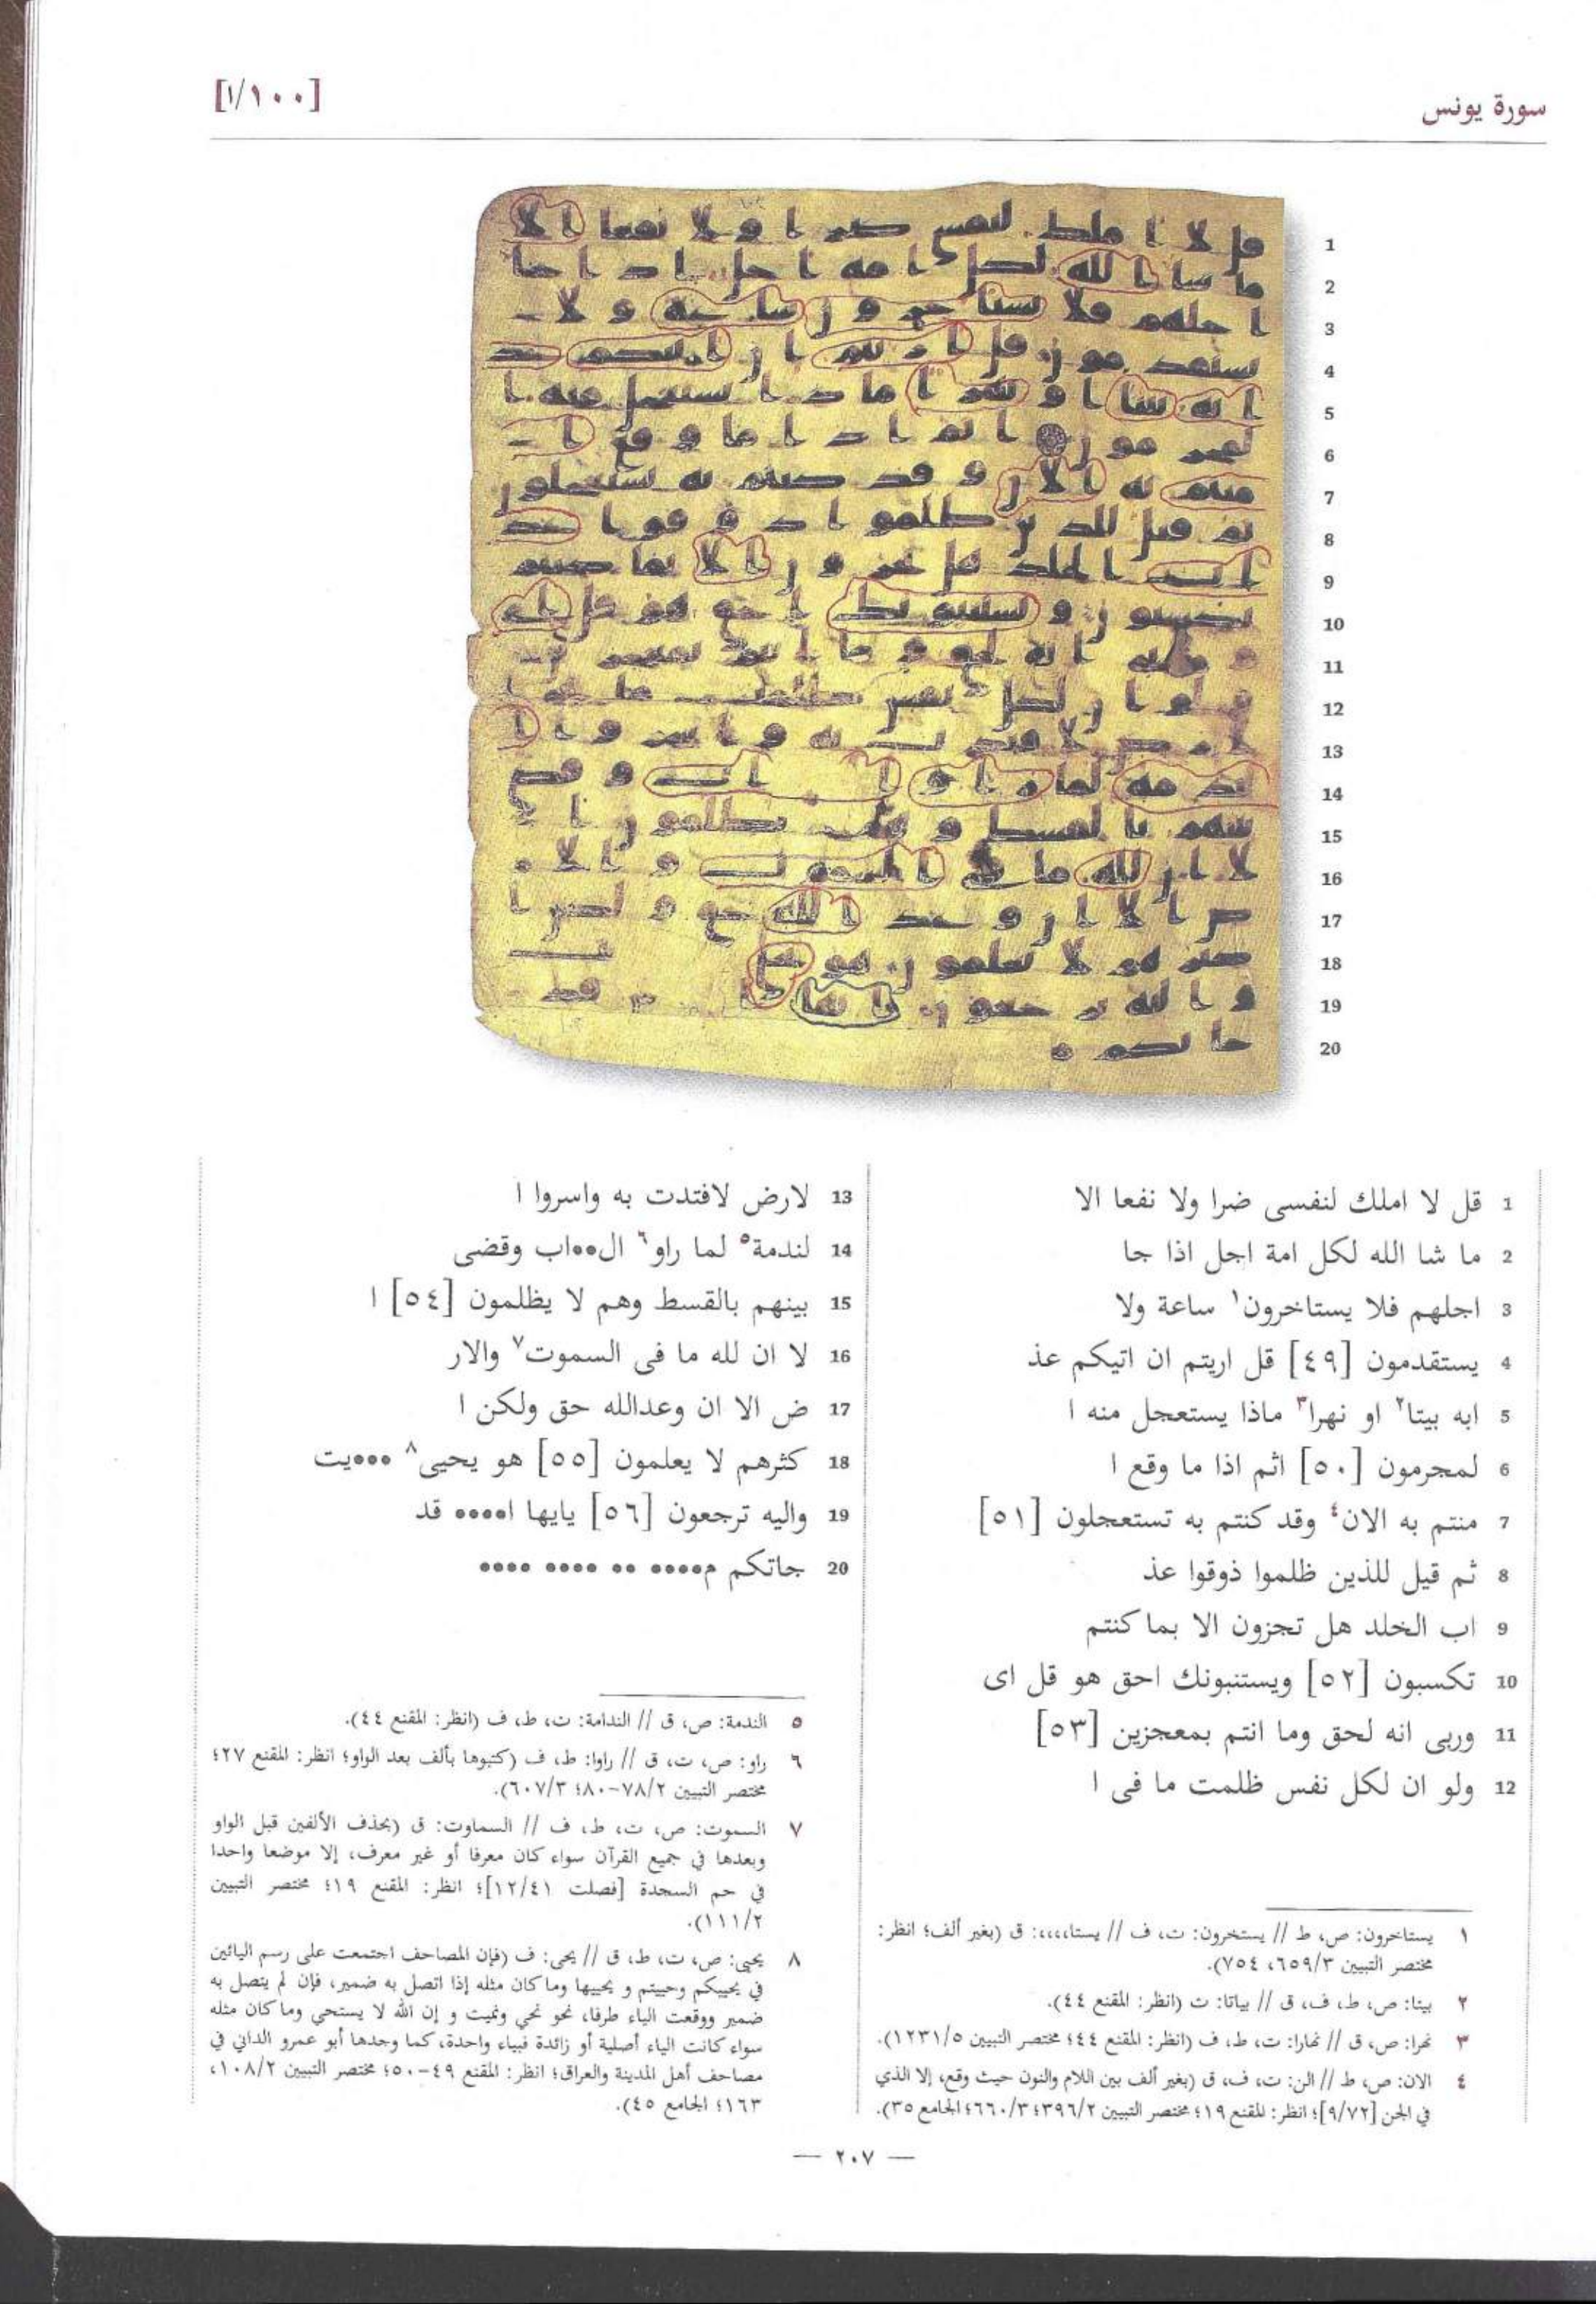 سورة يونس
[١/١٠٠]
1 قل لا املك لنفسى ضرا ولا نفعا الا
2 ما شا الله لكل امة اجل اذا جا
3 اجلهم فلا يستاخرون١ ساعة ولا
4 يستقدمون [٤٩] قل اريتم ان اتيكم عذ
5 ابه بيتا٢ او نهرا٣ ماذا يستعجل منه ا
6 لمجرمون [٥٠] اثم اذا ما وقع ا
7 منتم به الان٤ وقد كنتم به تستعجلون [٥١]
8 ثم قيل للذين ظلموا ذوقوا عذ
9 اب الخلد هل تجزون الا بما كنتم
10 تكسبون [٥٢] ويستنبونك احق هو قل اى
11 وربى انه لحق وما انتم بمعجزين [٥٣]
12 ولو ان لكل نفس ظلمت ما فى ا
13 لارض لافتدت به واسروا ا
14 لندمة٥ لما راو٦ ال••اب وقضى
15 بينهم بالقسط وهم لا يظلمون [٥٤] ا
16 لا ان لله ما فى السموت٧ والار
17 ض الا ان وعدالله حق ولكن ا
18 كثرهم لا يعلمون [٥٥] هو يحيى٨ •••يت
19 واليه ترجعون [٥٦] يايها ا•••• قد
20 جاتكم م•••• •• •••• ••••
١ يستاخرون: ص، ط // يستخرون: ت، ف // يستا،،،،: ق (بغير ألف؛ انظر:
مختصر التبيين ٦٥٩/٣، ٧٥٤).
٢ بيتا: ص، ط، ف، ق // بياتا: ت (انظر: المقنع ٤٤).
٣ نهرا: ص، ق // نهارا: ت، ط، ف (انظر: المقنع ٤٤؛ مختصر التبيين ١٢٣١/٥).
٤ الان: ص، ط // الن: ت، ف، ق (بغير ألف بين اللام والنون حيث وقع، إلا الذي
في الجن [٩/٧٢]؛ انظر: المقنع ١٩؛ مختصر التبيين ٣٩٦/٢؛ ٦٦٠/٣؛ الجامع ٣٥).
٥ الندمة: ص، ق // الندامة: ت، ط، ف (انظر: المقنع ٤٤).
٦ راو: ص، ت، ق // راوا: ط، ف (كتبوها بألف بعد الواو؛ انظر: المقنع ٢٧؛
مختصر التبيين ٧٨/٢-٨٠؛ ٦٠٧/٣).
٧ السموت: ص، ت، ط، ف // السماوت: ق (بحذف الألفين قبل الواو
وبعدها في جميع القرآن سواء كان معرفا أو غير معرف، إلا موضعا واحدا
في حم السجدة [فصلت ١٢/٤١]؛ انظر: المقنع ١٩؛ مختصر التبيين
١١١/٢).
٨ يحيى: ص، ت، ط، ق // يحى: ف (فإن المصاحف اجتمعت على رسم اليائين
في يحييكم وحييتم و يحييها وما كان مثله إذا اتصل به ضمير، فإن لم يتصل به
ضمير ووقعت الياء طرفا، نحو نحي ونميت و إن الله لا يستحي وما كان مثله
سواء كانت الياء أصلية أو زائدة فبياء واحدة، كما وجدها أبو عمرو الداني في
مصاحف أهل المدينة والعراق؛ انظر: المقنع ٤٩-٥٠؛ مختصر التبيين ١٠٨/٢،
١٦٣؛ الجامع ٤٥).
— ٢٠٧ —